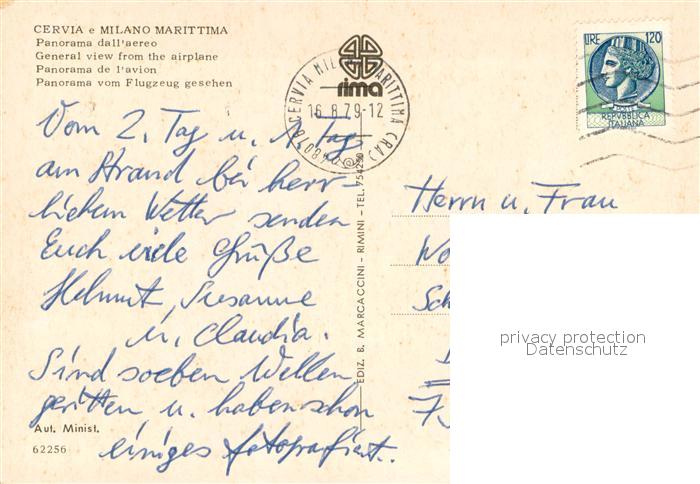 CERVIA e MILANO MARITTIMA
Panorama dall'aereo
General view from the airplane
Panorama de l'avion
Panorama vom Flugzeug gesehen
rima
CERVIA MILANO MARITTIMA (RA)
16.8.79-12
48016
LIRE 120
POSTE
REPVBBLICA
ITALIANA
Vom 2. Tag u. 1. Tag
am Strand bei herr-
lichem Wetter senden
Euch viele Grüße
Helmut, Susanne
u. Claudia.
Sind soeben Wellen
geritten u. haben schon
einiges fotografiert.
Aut. Minist.
62256
EDIZ. B. MARCACCINI - RIMINI - TEL. 754250
Herrn u. Frau
privacy protection
Datenschutz